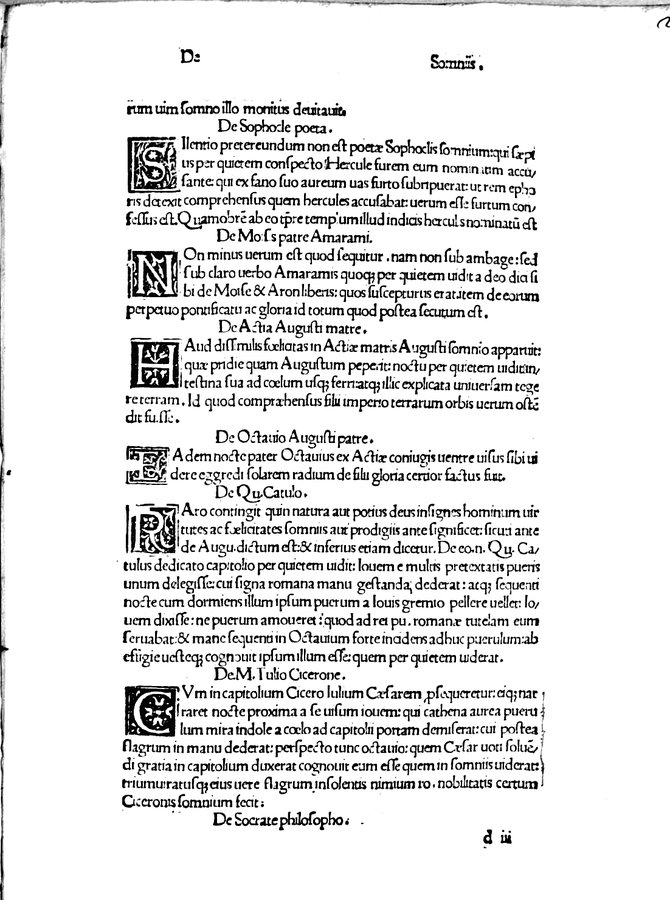 De Somniis.
rum uim somno illo monitus deuitauit.
De Sophocle poeta.
SIlentio pretereundum non est poetæ Sophoclis somnium: qui sæpi
us per quietem conspecto Hercule furem eum nominatim accu/
sante: qui ex fano suo aureum uas furto subripuerat: ut rem epho
ris detexit comprehensus quem hercules accusabat: uerum esse furtum con/
fessus est. Quamobrē ab eo tp̄re templum illud indicis herculis nominatū est
De Moysis patre Amarami.
NOn minus uerum est quod sequitur. nam non sub ambage: sed
sub claro uerbo Amaramis quoqꝫ per quietem uidit a deo dici si
bi de Moise & Aron liberis: quos suscepturus erat. item de eorum
perpetuo pontificatu ac gloria id totum quod postea secutum est.
De Actia Augusti matre.
HAud dissimilis fœlicitas in Actiæ matris Augusti somnio apparuit:
quæ pridie quam Augustum peperit: noctu per quietem uidit in/
testina sua ad cœlum usqꝫ ferri: atqꝫ illic explicata uniuersam tege
re terram. Id quod compræhensus filii imperio terrarum orbis uerum ostē
dit fuisse.
De Octauio Augusti patre.
EAdem nocte pater Octauius ex Actiæ coniugis uentre uisus sibi ui
dere eggredi solarem radium de filii gloria certior factus fuit.
De Qu. Catulo.
RAro contingit quin natura aut potius deus insignes hominum uir
tutes ac fœlicitates somniis aut prodigiis ante significet: sicuti ante
de Augu. dictum est: & inferius etiam dicetur. De eo.n. Qu. Ca/
tulus dedicato capitolio per quietem uidit: Iouem e multis pretextatis pueris
unum delegisse: cui signa romana manu gestanda dederat: atqꝫ sequenti
nocte cum dormiens illum ipsum puerum a Iouis gremio pellere uellet: Io/
uem dixisse: ne puerum amoueret: quod ad rei pu. romanæ tutelam eum
seruabat: & mane sequenti in Octauium forte incidens adhuc puerulum: ab
effigie uesteqꝫ cognouit ipsum illum esse: quem per quietem uiderat.
De M. Tulio Cicerone.
CVm in capitolium Cicero Iulium Cæsarem ꝓsequeretur: eiqꝫ nar
raret nocte proxima a se uisum iouem: qui cathena aurea pueru
lum mira indole a cœlo ad capitolii portam demiserat: cui postea
flagrum in manu dederat: perspecto tunc octauio: quem Cæsar uoti soluē
di gratia in capitolium duxerat cognouit eum esse quem in somniis uiderat:
triumuiratusqꝫ eius uere flagrum insolentis nimium ro. nobilitatis certum
Ciceronis somnium fecit:
De Socrate philosopho.
d iii